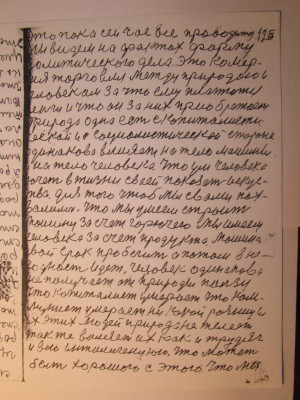 это пока сейчас все проводят 123
Мы видем на фактах форму
политического дела. Это Комер-
ия торговли между природой и
человеком за что ему платют
деньги и что он за них приобретает
природа одна есть в Копиталисти
ческой и в Социолистической стороне
одинакова влияет на тело машины
на тело человека что ум человека
хочет в жизни своей показат искус
ства. для того чтоб Мы своими пох-
валили. что мы умеем строит
машину за счет горючего Мы имеем
человека за счет продукта. Машина
свой срок пробегит а потом в не-
годност идет. человек одинаково
не получает от природы ползу
что копиталист умерает что Ком-
мунист умерает ни какой розницы
их этих людей природа не жалеет
так же валяет их как и трудяг
и всю интилигенцию. что может
быт хорошого с этого что мы